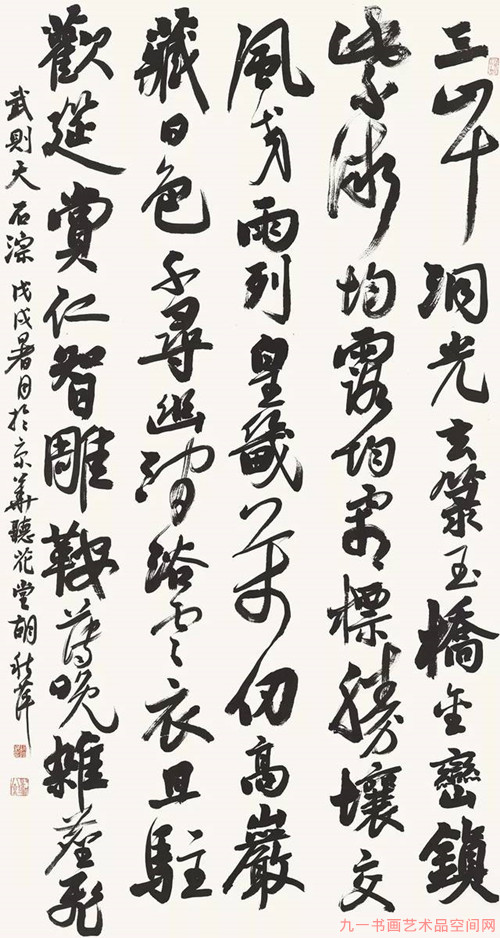 三山十洞光玄箓玉橋金巒鎮
紫微均露均霜標勝壤交
風交雨列皇畿萬仞高巖
藏日色千尋幽澗浴雲衣且駐
歡筵賞仁智雕鞍薄晚雜塵飛
武則天 石淙 戊戌暑月於京華聽花堂胡秋萍
九一书画艺术品空间网